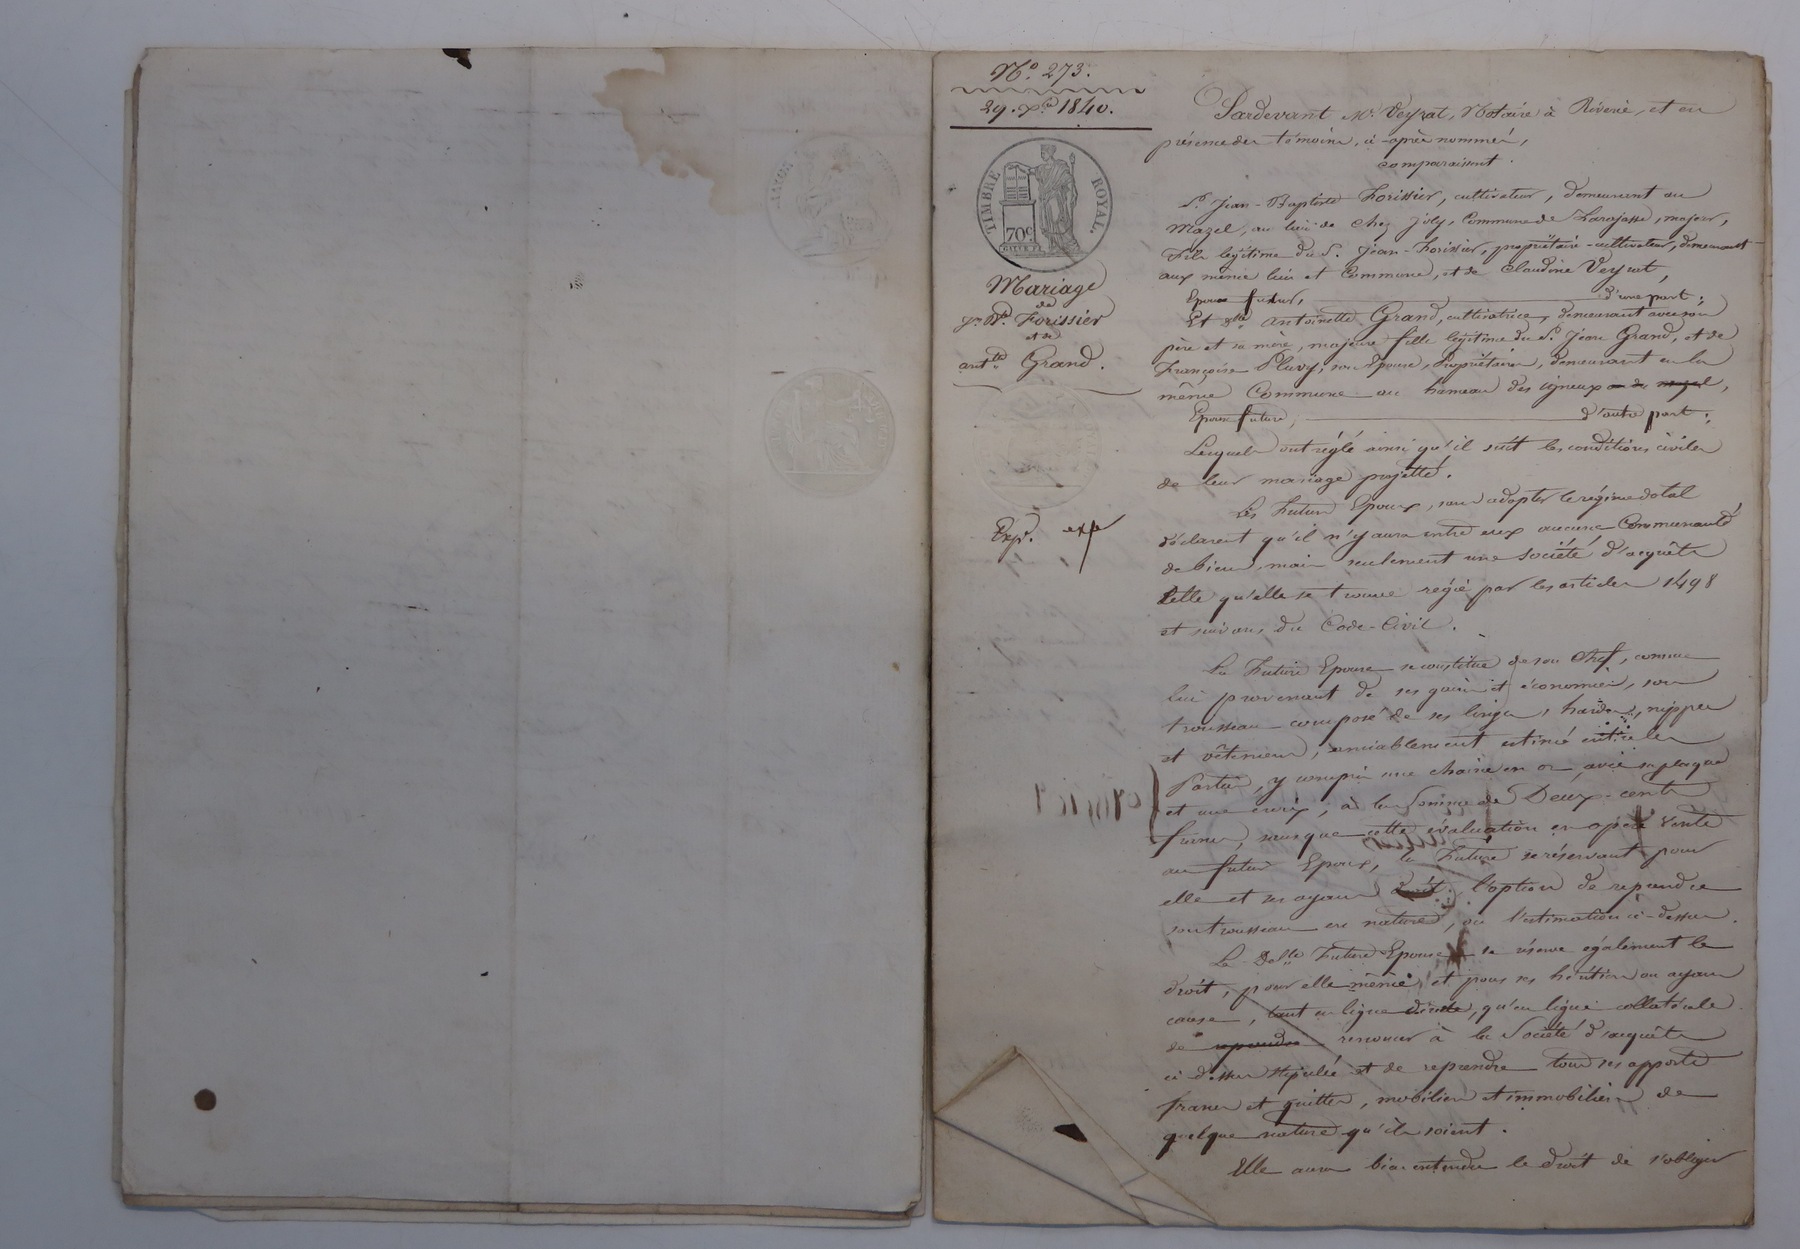 N.o 273.
29. Xbre 1840.
TIMBRE ROYAL.
70c
Mariage
de
Jn Bte Forissier
et de
antte Grand.
Expé. expé
Pardevant Me Veyrat, Notaire à Riverie, et en
présence des témoins, ci-après nommés,
comparaissent
Sr Jean-Baptiste Forissier, cultivateur, demeurant au
Mazel, au lieu de Chez Joly, Commune de Larajasse, majeur,
Fils légitime du S. Jean Forissier, propriétaire-cultivateur, demeurant
aux même lieu et Commune, et de Claudine Veyrat,
Epoux futur, d'une part;
Et Dlle Antoinette Grand, cultivatrice, demeurant avec son
père et sa mère, majeure fille légitime du Sr Jean Grand, et de
Françoise Pluvy, son épouse, Propriétaires, demeurant en la
même Commune au hameau des igneux,
Epouse future, d'autre part;
Lesquels ont réglé ainsi qu'il suit les conditions civiles
de leur mariage projetté.
Les Futurs Epoux, sans adopter le régime dotal
déclarent qu'il n'y aura entre eux aucune Communauté
de biens, mais seulement une société d'acquêts
telle qu'elle se trouve régie par les articles 1498
et suivans du Code-Civil.
La Future Epouse se constitue de son chef, comme
lui provenant de ses gains et économies, son
trousseau composé de ses linges, hardes, nippes
et vêtemens, amiablement estimé entre les
Parties, y compris une chaîne en or, avec sa plaque
et une croix, à la Somme de Deux-cents
francs, sans que cette évaluation en opère vente
au futur Epoux, la Future se réservant pour
elle et ses ayans droit, l'option de reprendre
son trousseau en nature, ou l'estimation ci-dessus.
La Delle Future Epouse se réserve également le
droit, pour elle même, et pour ses héritiers ou ayans
cause, tant en ligne directe, qu'en ligne collatérale
de reprendre renoncer à la Société d'acquêts
ci dessus stipulée et de reprendre tous ses apports
francs et quittes, mobiliers et immobiliers de
quelque nature qu'ils soient.
Elle aura bien entendu le droit de s'obliger